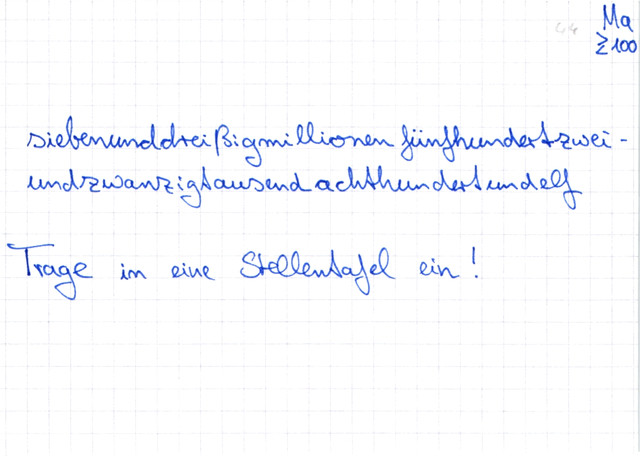 Ma
≥100
siebenunddreißigmillionen fünfhundertzwei-
undzwanzigtausendachthundertundelf
Trage in eine Stellentafel ein!